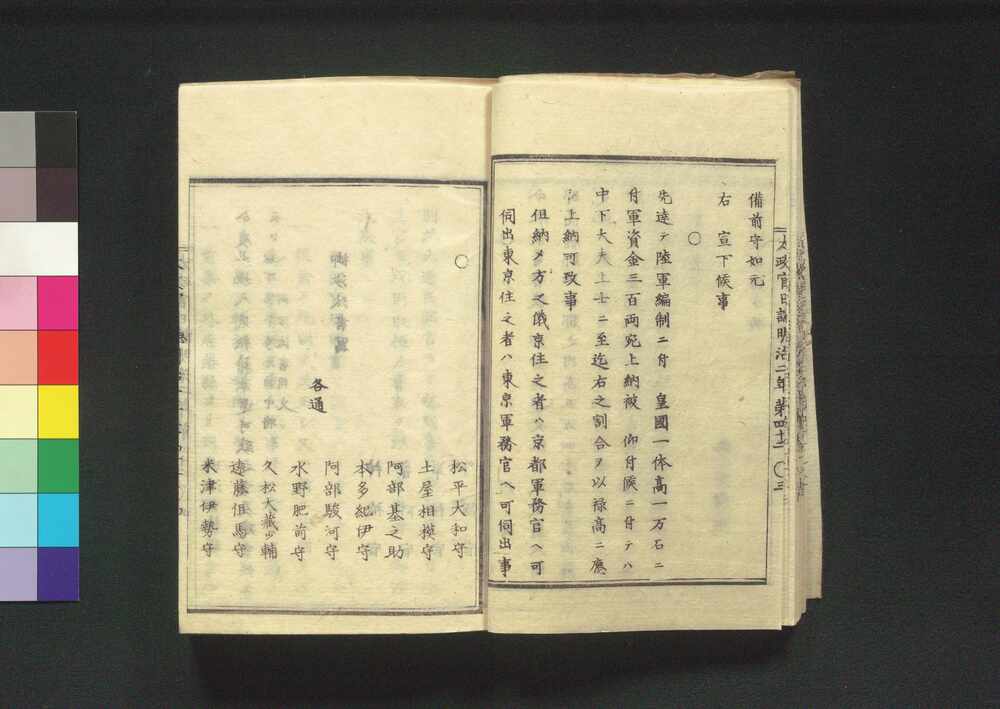 備前守如元
右　宣下候事
○
先達テ陸軍編制ニ付　皇國一体高一万石ニ
付軍資金三百両宛上納被　仰付候ニ付テハ
中下大夫上士ニ至迄右之割合ヲ以禄高ニ應
シ上納可致事
但納メ方之儀京住之者ハ京都軍務官ヘ可
伺出東京住之者ハ東京軍務官ヘ可伺出事
太政官日誌明治二年 第四十二 ○三
○
松平大和守
土屋相模守
阿部基之助
本多紀伊守
各通
阿部駿河守
水野肥前守
久松大藏少輔
遠藤但馬守
米津伊勢守